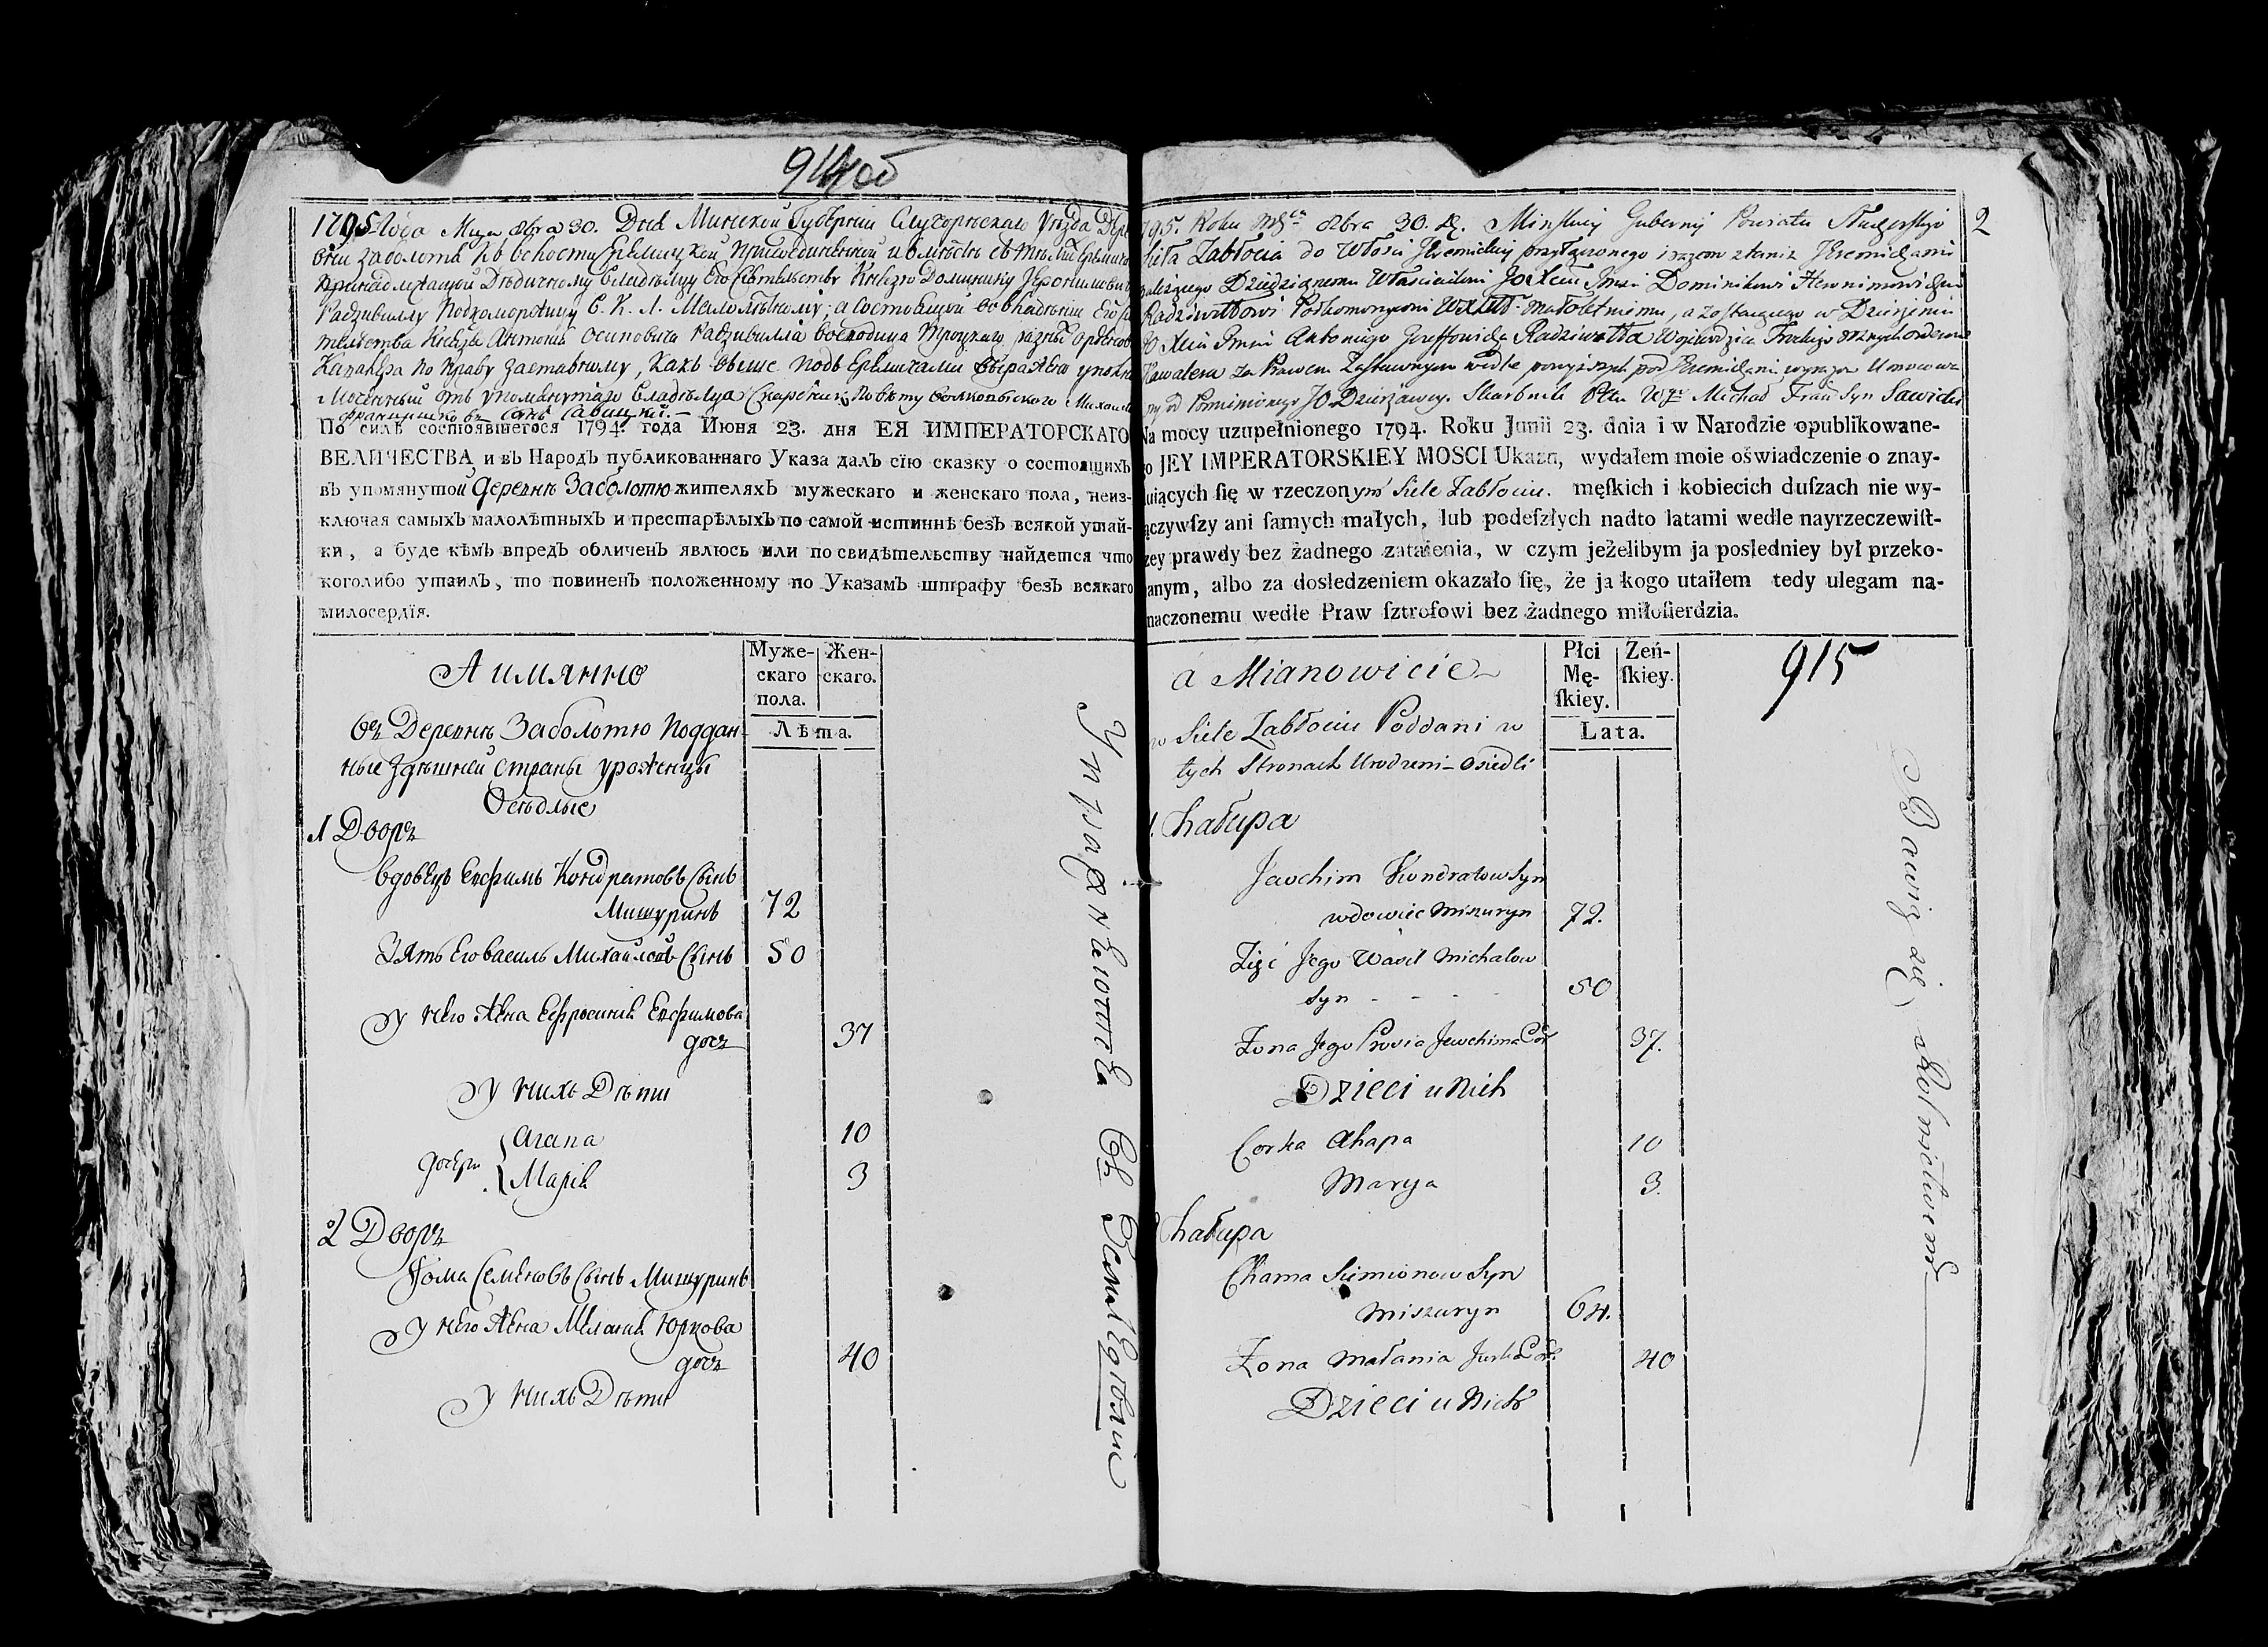 914 об
1795 Года Мца 8бра 30. Дня Минской Губерніи Слуцорѣскаго Уѣзда Дере
вни Заболотя къ волости Еремицкой присоединенной и вмѣстѣ съ
принадлежащой Дѣдичному Владѣлцу Его Сѣятельству Князю Доминику Іеронимовичу
Радзивиллу Подкоморѣицу В. К. Л. Малолѣтному; а состоящой во владѣніи Его
телства Князя Антонія Осиповича Радзивилла воеводица Троцкаго разныхъ ордѣновъ
Кавалера по праву заставному, какъ выше подъ Еремичами выражено
отъ упомянутаго Владѣлца Михаилъ
Францишковъ Сынъ Савицкій. –
По силѣ состоявшегося 1794. года Июня 23. дня ЕЯ ИМПЕРАТОРСКАГО
ВЕЛИЧЕСТВА и въ Народъ публикованнаго Указа далъ сїю сказку о состоящихъ
въ упомянутой Деревнѣ Заболотю жителяхъ мужескаго и женскаго пола, неиз-
ключая самыхъ малолѣтныхъ и престарѣлыхъ по самой истиннѣ безъ всякой утай-
ки, а буде кѣмъ впредъ обличенъ явлюсь или по свидѣтельству найдется что
коголибо утаилъ, то повиненъ положенному по Указамъ штрафу безъ всякаго
милосердїя.
А имянно
Муже-
скаго
пола.
Жен-
скаго.
Лѣта.
Въ Деревнѣ Заболотю Поддан-
ные здѣшней страны уроженцы
Осѣдлые
1 Дворъ
Вдовецъ Евфимъ Кондратовъ Сынъ
Мишуринъ 72
Зять Его Василь Михайловъ Сынъ 50
У него Жена Ефросинія Евфимова
дочь 37
У нихъ Дѣти
дочери Агапа 10
Марія 3
2 Дворъ
Фома Семеновъ Сынъ Мишуринъ
У него Жена Меланія Юркова
дочь 40
У нихъ Дѣти
Упражняются Въ Земледѣліи
2
1795. Roku Mca 8bra 30. D. Minskiej Gubernij Powiatu Słuckorskiego
Sieła Zabłocia do Włości Jeremickiej przyłączonego i razem z tąmiż Jeremiczami
należącego Dziedzicznemu Właścicielowi Jo Xciu Imci Dominikowi Heronimowiczowi
Radziwiłłowi Podkomorzycowi WXLitt. małoletniemu, a zostającego w Dzierżeniu
JO Xcia Imci Antoniego Jozeffowicza Radziwiłła Wojewodzica Trockiego roznych orderow
Kawalera za Prawem Zastawnym wedle powyższych pod Jeremiczami
Michał Fran Syn Sawicki
Na mocy uzupełnionego 1794. Roku Junii 23. dnia i w Narodzie opublikowane-
go JEY IMPERATORSKIEY MOSCI Ukazu, wydałem moie oświadczenie o znay-
duiących ſię w rzeczonym Siele Zabłociu. męſkich i kobiecich duſzach nie wy-
łączywſzy ani ſamych małych, lub podeſzłych nadto latami wedle nayrzeczewiſt-
ſzey prawdy bez żadnego zataienia, w czym jeżelibym ja posledniey był przeko-
nanym, albo za dosledzeniem okazało ſię, że ja kogo utaiłem tedy ulegam na-
znaczonemu wedle Praw ſztrofowi bez żadnego miłoſierdzia.
915
a Mianowicie
Płci
Mę-
ſkiey.
Zeń-
ſkiey.
Lata.
w Siele Zabłociu Poddani w
tych Stronach Urodzeni – osiedli
1. Chałupa
Jewchim Kondratow Syn
wdowiec Miszuryn 72.
Zięć Jego Wasil Michałow
Syn - - - - 50
Żona Jego Prosia Jewchima Cor 37.
Dzieci u Nich
Corka Ahapa 10
Marya 3.
2 Chałupa
Chama Siemionow Syn
Miszuryn 64.
Żona Małania Jurka Cor. 40
Dzieci u Nich
Bawią się Rolnictwem